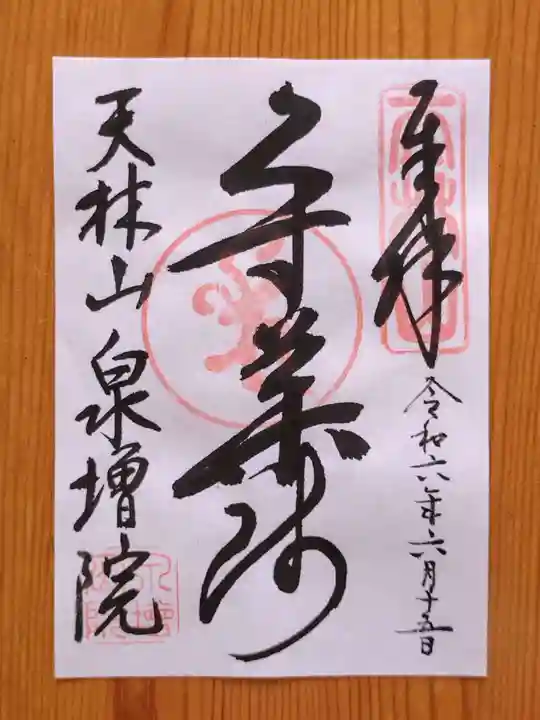 奉拝
令和六年六月十五日
寺薬師
天林山泉増院